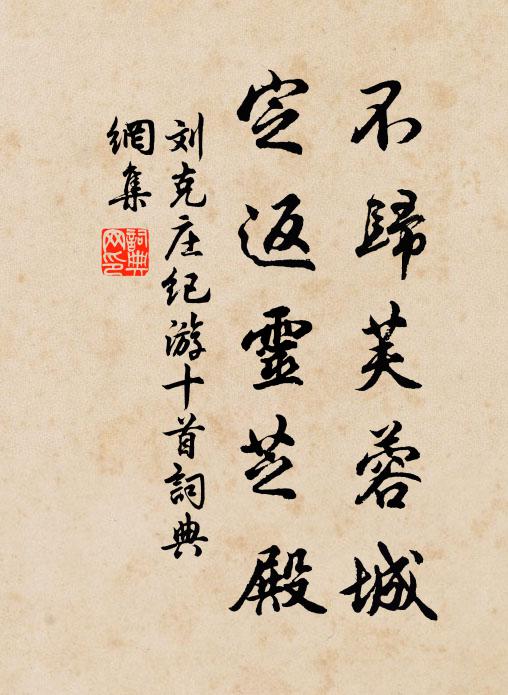 不歸芙蓉城
定返靈芝殿
刘克庄纪游十首詞典
網集
詞典网印